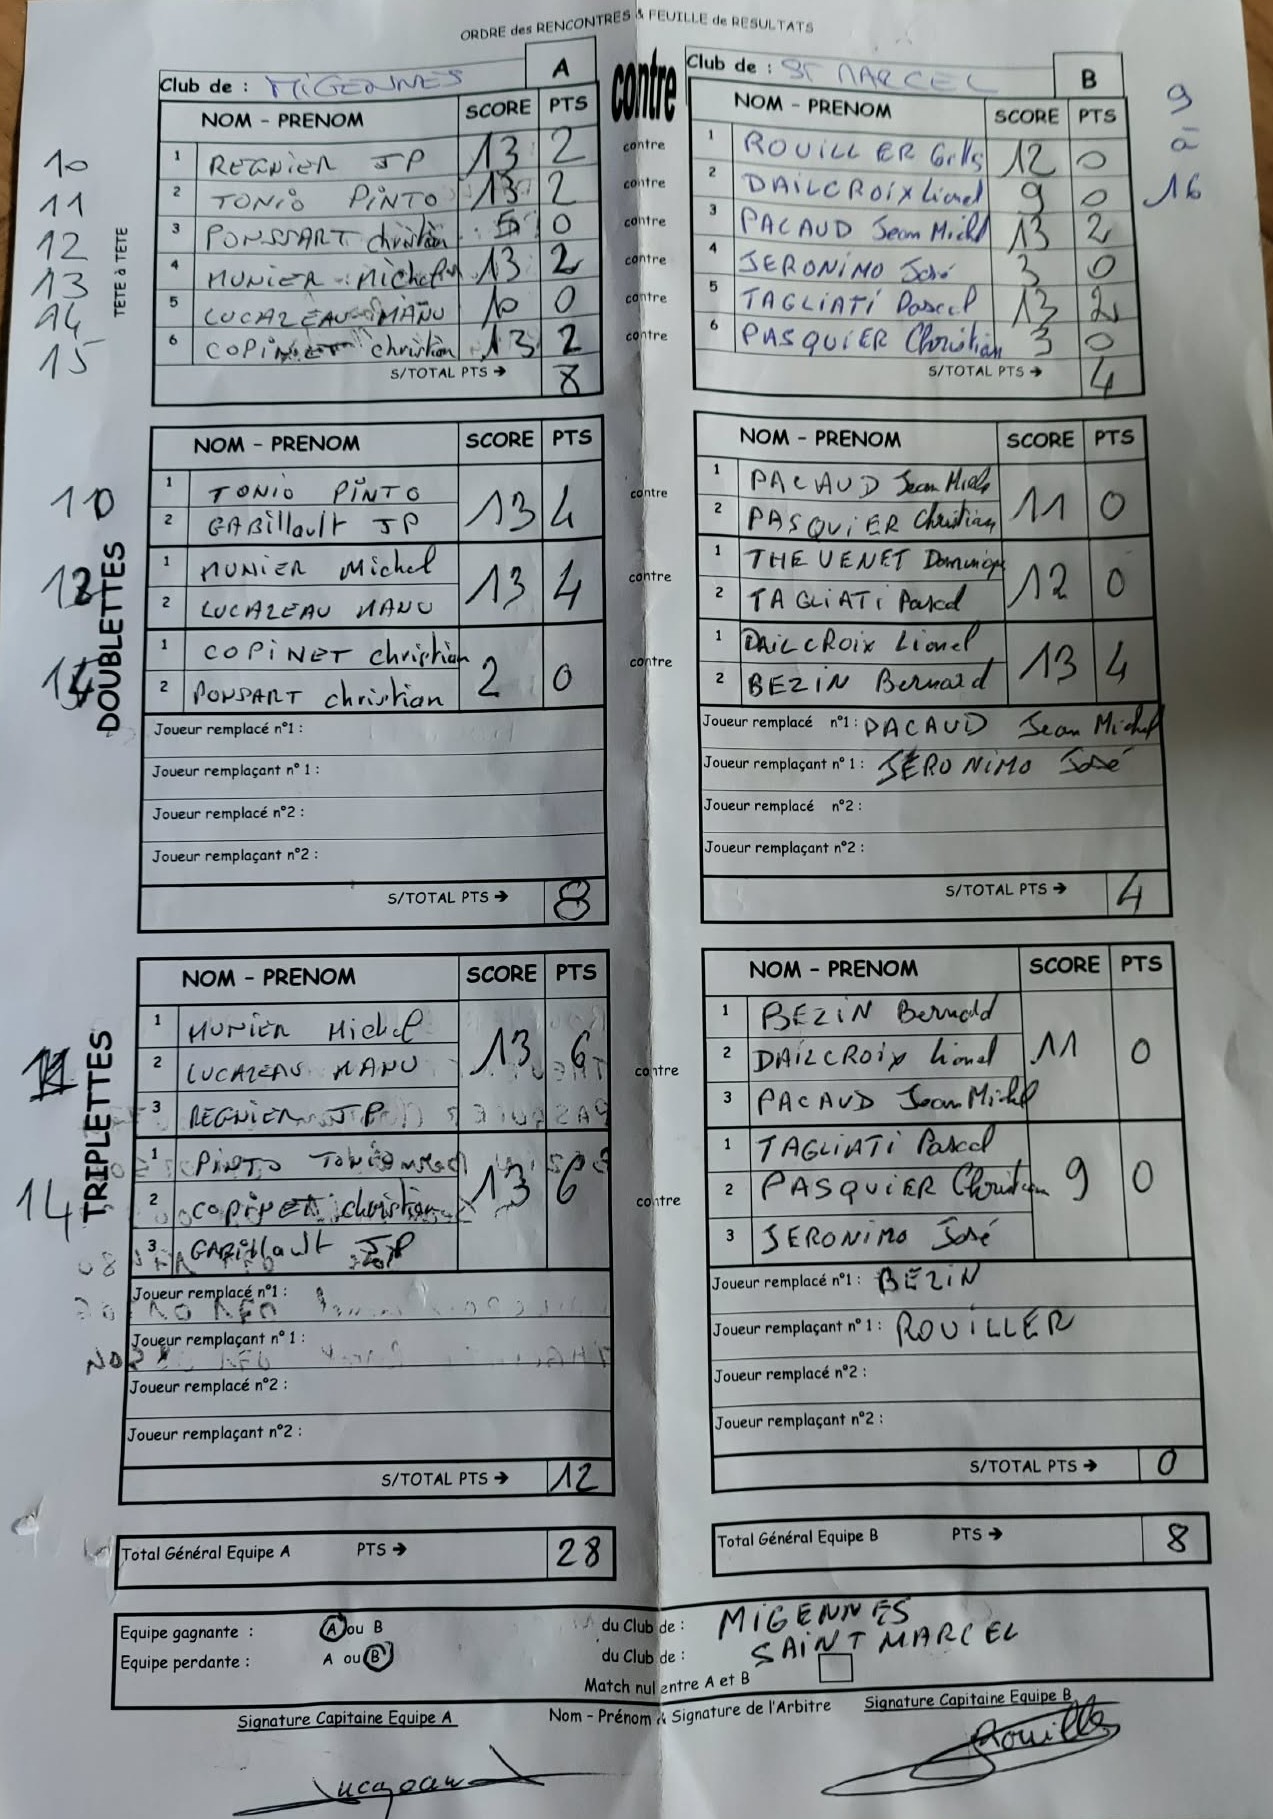 ORDRE des RENCONTRES & FEUILLE de RESULTATS
Club de : MIGENNES A contre Club de : ST MARCEL B
9 à 16
NOM - PRENOM SCORE PTS NOM - PRENOM SCORE PTS
TETE à TETE
10 1 REGNIER JP 13 2 contre 1 ROUILLER Gills 12 0
11 2 TONIO PINTO 13 2 contre 2 DAILCROIX Lionel 9 0
12 3 PONSSART christian 0 contre 3 PACAUD Jean Michl 13 2
13 4 MUNIER Michel 13 2 contre 4 JERONIMO José 3 0
14 5 LUCAZEAU MANU 10 0 contre 5 TAGLIATI Pascal 13 2
15 6 COPINET christian 13 2 contre 6 PASQUIER Christian 3 0
S/TOTAL PTS → 8 S/TOTAL PTS → 4
DOUBLETTES
NOM - PRENOM SCORE PTS NOM - PRENOM SCORE PTS
10 1 TONIO PINTO 13 4 contre 1 PACAUD Jean Michl 11 0
2 GABillault JP 2 PASQUIER Christian
1 MUNIER Michel 13 4 contre 1 THEVENET Dominique 12 0
2 LUCAZEAU MANU 2 TAGLIATI Pascal
1 COPINET christian 2 0 contre 1 DAILCROIX Lionel 13 4
2 PONSART christian 2 BEZIN Bernard
Joueur remplacé n°1 : Joueur remplacé n°1 : PACAUD Jean Michel
Joueur remplaçant n° 1 : Joueur remplaçant n° 1 : JERONIMO José
Joueur remplacé n°2 : Joueur remplacé n°2 :
Joueur remplaçant n°2 : Joueur remplaçant n°2 :
S/TOTAL PTS → 8 S/TOTAL PTS → 4
TRIPLETTES
NOM - PRENOM SCORE PTS NOM - PRENOM SCORE PTS
1 MUNIER Michel 13 6 contre 1 BEZIN Bernald 11 0
2 LUCAZEAU MANU 2 DAILCROIX Lionel
3 REGNIER JP 3 PACAUD Jean Michl
14 1 PINTO Tonio 13 6 contre 1 TAGLIATI Pascal 9 0
2 COPINET christian 2 PASQUIER Christian
3 GABillault JP 3 JERONIMO José
Joueur remplacé n°1 : Joueur remplacé n°1 : BEZIN
Joueur remplaçant n° 1 : Joueur remplaçant n° 1 : ROUILLER
Joueur remplacé n°2 : Joueur remplacé n°2 :
Joueur remplaçant n°2 : Joueur remplaçant n°2 :
S/TOTAL PTS → 12 S/TOTAL PTS → 0
Total Général Equipe A PTS → 28 Total Général Equipe B PTS → 8
Equipe gagnante : A ou B du Club de : MIGENNES
Equipe perdante : A ou B du Club de : SAINT MARCEL
Match nul entre A et B
Signature Capitaine Equipe A Nom - Prénom & Signature de l'Arbitre Signature Capitaine Equipe B